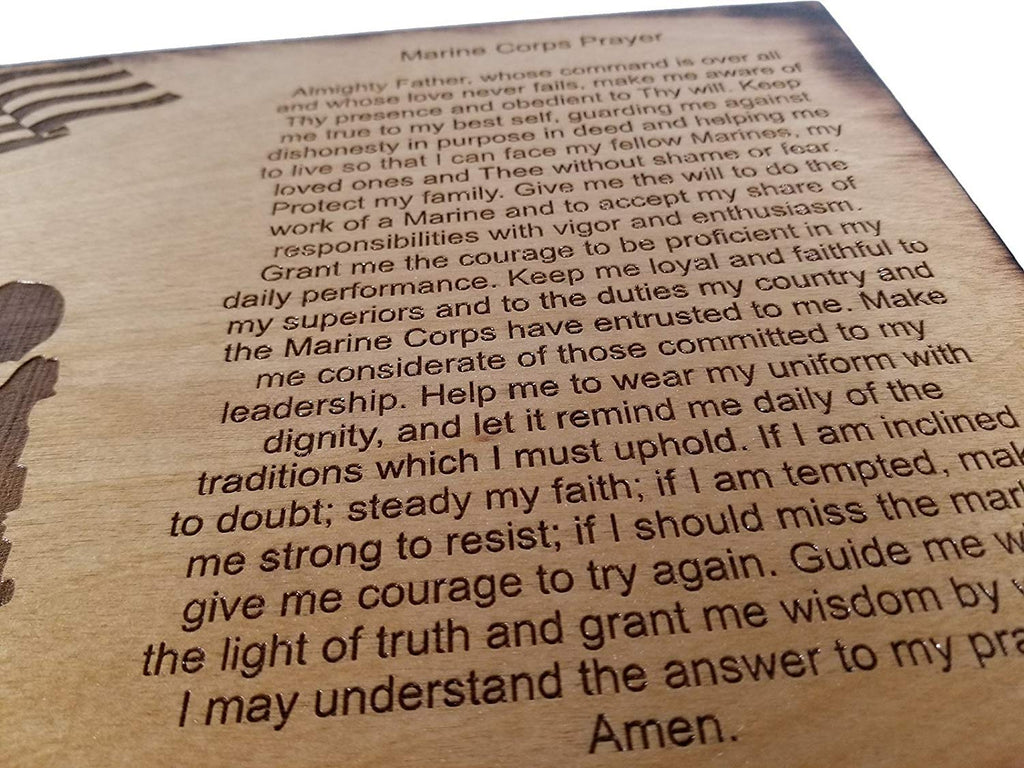 Marine Corps Prayer
Almighty Father, whose command is over all
and whose love never fails, make me aware of
Thy presence and obedient to Thy will. Keep
me true to my best self, guarding me against
dishonesty in purpose in deed and helping me
to live so that I can face my fellow Marines, my
loved ones and Thee without shame or fear.
Protect my family. Give me the will to do the
work of a Marine and to accept my share of
responsibilities with vigor and enthusiasm.
Grant me the courage to be proficient in my
daily performance. Keep me loyal and faithful to
my superiors and to the duties my country and
the Marine Corps have entrusted to me. Make
me considerate of those committed to my
leadership. Help me to wear my uniform with
dignity, and let it remind me daily of the
traditions which I must uphold. If I am inclined
to doubt; steady my faith; if I am tempted, mak
me strong to resist; if I should miss the mark
give me courage to try again. Guide me w
the light of truth and grant me wisdom by
I may understand the answer to my pra
Amen.